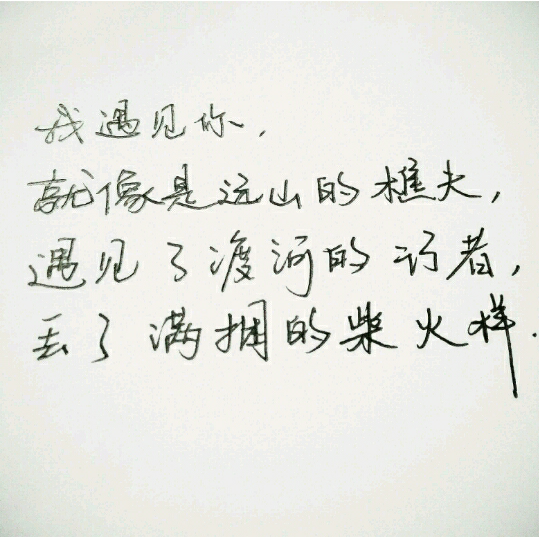 我遇见你，
就像是远山的樵夫，
遇见了渡河的行者，
丢了满捆的柴火样.